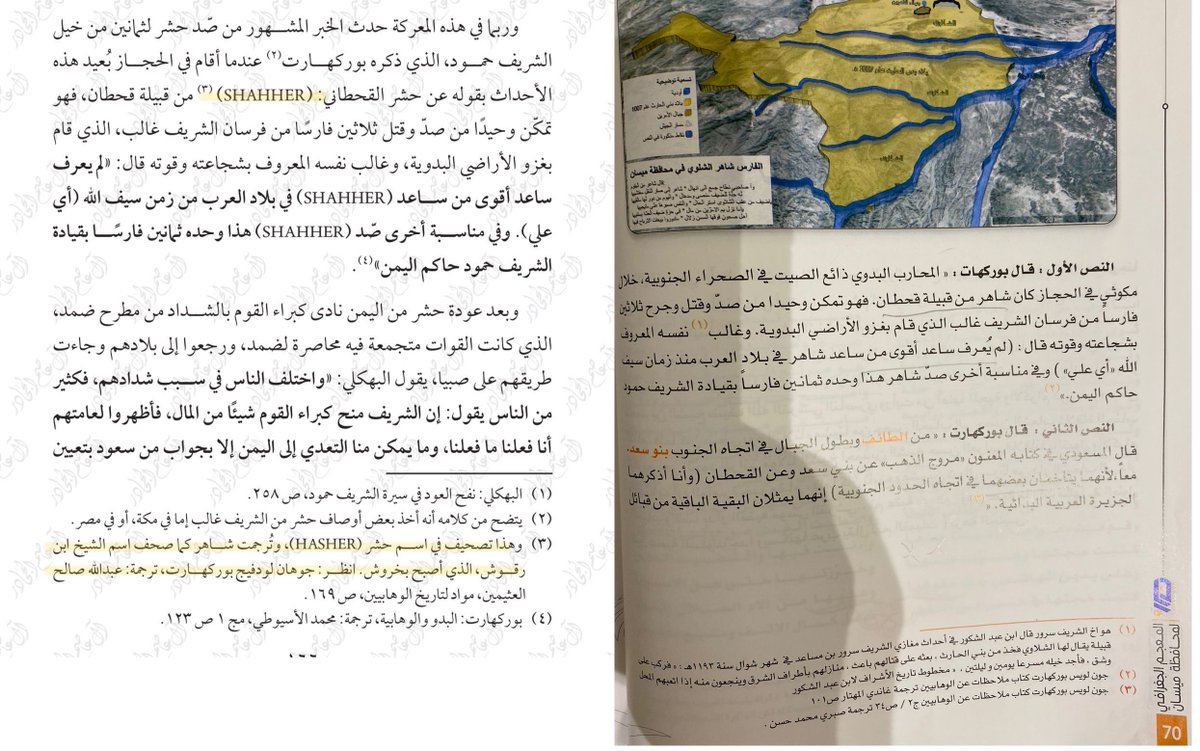 وربما في هذه المعركة حدث الخبر المشهور من صّد حشر لثمانين من خيل
الشريف حمود، الذي ذكره بوركهارت(٢) عندما أقام في الحجاز بُعيد هذه
الأحداث بقوله عن حشر القحطاني: (SHAHHER) (٣) من قبيلة قحطان، فهو
تمكّن وحيدًا من صدّ وقتل ثلاثين فارسًا من فرسان الشريف غالب، الذي قام
بغزو الأراضي البدوية، وغالب نفسه المعروف بشجاعته وقوته قال: «لم يعرف
ساعد أقوى من ساعد (SHAHHER) في بلاد العرب من زمن سيف الله (أي
علي). وفي مناسبة أخرى صّد (SHAHHER) هذا وحده ثمانين فارسًا بقيادة
الشريف حمود حاكم اليمن»(٤).
وبعد عودة حشر من اليمن نادى كبراء القوم بالشداد من مطرح ضمد،
الذي كانت القوات متجمعة فيه محاصرة لضمد، ورجعوا إلى بلادهم وجاءت
طريقهم على صبيا، يقول البهكلي: «واختلف الناس في سبب شدادهم، فكثير
من الناس يقول: إن الشريف منح كبراء القوم شيئًا من المال، فأظهروا لعامتهم
أنا فعلنا ما فعلنا، وما يمكن منا التعدي إلى اليمن إلا بجواب من سعود بتعيين
(١) البهكلي: نفح العود في سيرة الشريف حمود، ص ٢٥٨.
(٢) يتضح من كلامه أنه أخذ بعض أوصاف حشر من الشريف غالب إما في مكة، أو في مصر.
(٣) وهذا تصحيف في اسم حشر (HASHER)، وتُرجمت شاهر كما صحف اسم الشيخ ابن
رقوش، الذي أصبح بخروش. انظر: جوهان لودفيج بوركهارت، ترجمة: عبدالله صالح
العثيمين، مواد لتاريخ الوهابيين، ص ١٦٩.
(٤) بوركهارت: البدو والوهابية، ترجمة: محمد الأسيوطي، مج ١ ص ١٢٣.
تسمية توضيحية
أودية
بلاد بني الحارث عام 1007
جبال الأمرين
مسار الجيش
نقاط مذكورة في النص
الفارس شاهر الشلوي في محافظة ميسان
النص الأول : قال بوركهات : « المحارب البدوي ذائع الصيت في الصحراء الجنوبية، خلال
مكوثي في الحجاز كان شاهر من قبيلة قحطان. فهو تمكن وحيدا من صدّ وقتل وجرح ثلاثين
فارساً من فرسان الشريف غالب الذي قام بغزو الأراضي البدوية. وغالب(١) نفسه المعروف
بشجاعته وقوته قال : (لم يُعرف ساعد أقوى من ساعد شاهر في بلاد العرب منذ زمان سيف
الله «أي علي» ) وفي مناسبة أخرى صدّ شاهر هذا وحده ثمانين فارساً بقيادة الشريف حمود
حاكم اليمن.»(٢)
النص الثاني : قال بوركهارت : « من الطائف وبطول الجبال في اتجاه الجنوب بنو سعد.
قال المسعودي في كتابه المعنون «مروج الذهب» عن بني سعد وعن القحطان (وأنا أذكرهما
معاً،لأنهما يتاخمان بعضهما في اتجاه الحدود الجنوبية ) إنهما يمثلان البقية الباقية من قبائل
الجزيرة العربية البدائية. »(٣)
(١) هو اخ الشريف سرور قال ابن عبد الشكور في أحداث مغازي الشريف سرور بن مساعد في شهر شوال سنة ١١٩٣هـ : « فركب على
قبيلة يقال لها الشلاوي فخذ من بني الحارث . بعثه على قتالهم باعث . منازلهم بأطراف الشرق وينجعون منه إذا اتعبهم المحل
وشق . فأجد خيله مسرعا يومين وليلتين . » مخطوط تاريخ الأشراف لابن عبد الشكور
(٢) جون لويس بوركهارت كتاب ملاحظات عن الوهابيين ترجمة غاندي المهتار ص١٠١
(٣) جون لويس بوركهارت كتاب ملاحظات عن الوهابيين ج٢ / ص٣٤ ترجمة صبري محمد حسن .
المعجم الجغرافي
لمحافظة ميسان
70